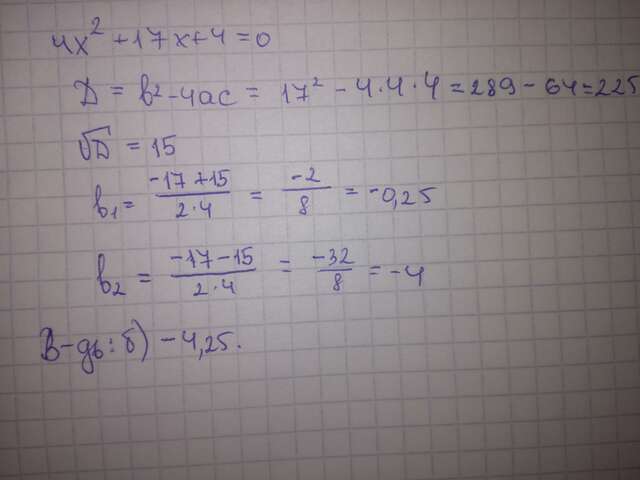 4x² + 17x + 4 = 0
Д = b² - 4ac = 17² - 4·4·4 = 289 - 64 = 225
√D = 15
b₁ = (-17 + 15)/(2·4) = -2/8 = -0,25
b₂ = (-17 - 15)/(2·4) = -32/8 = -4
В-дь: б) -4,25.